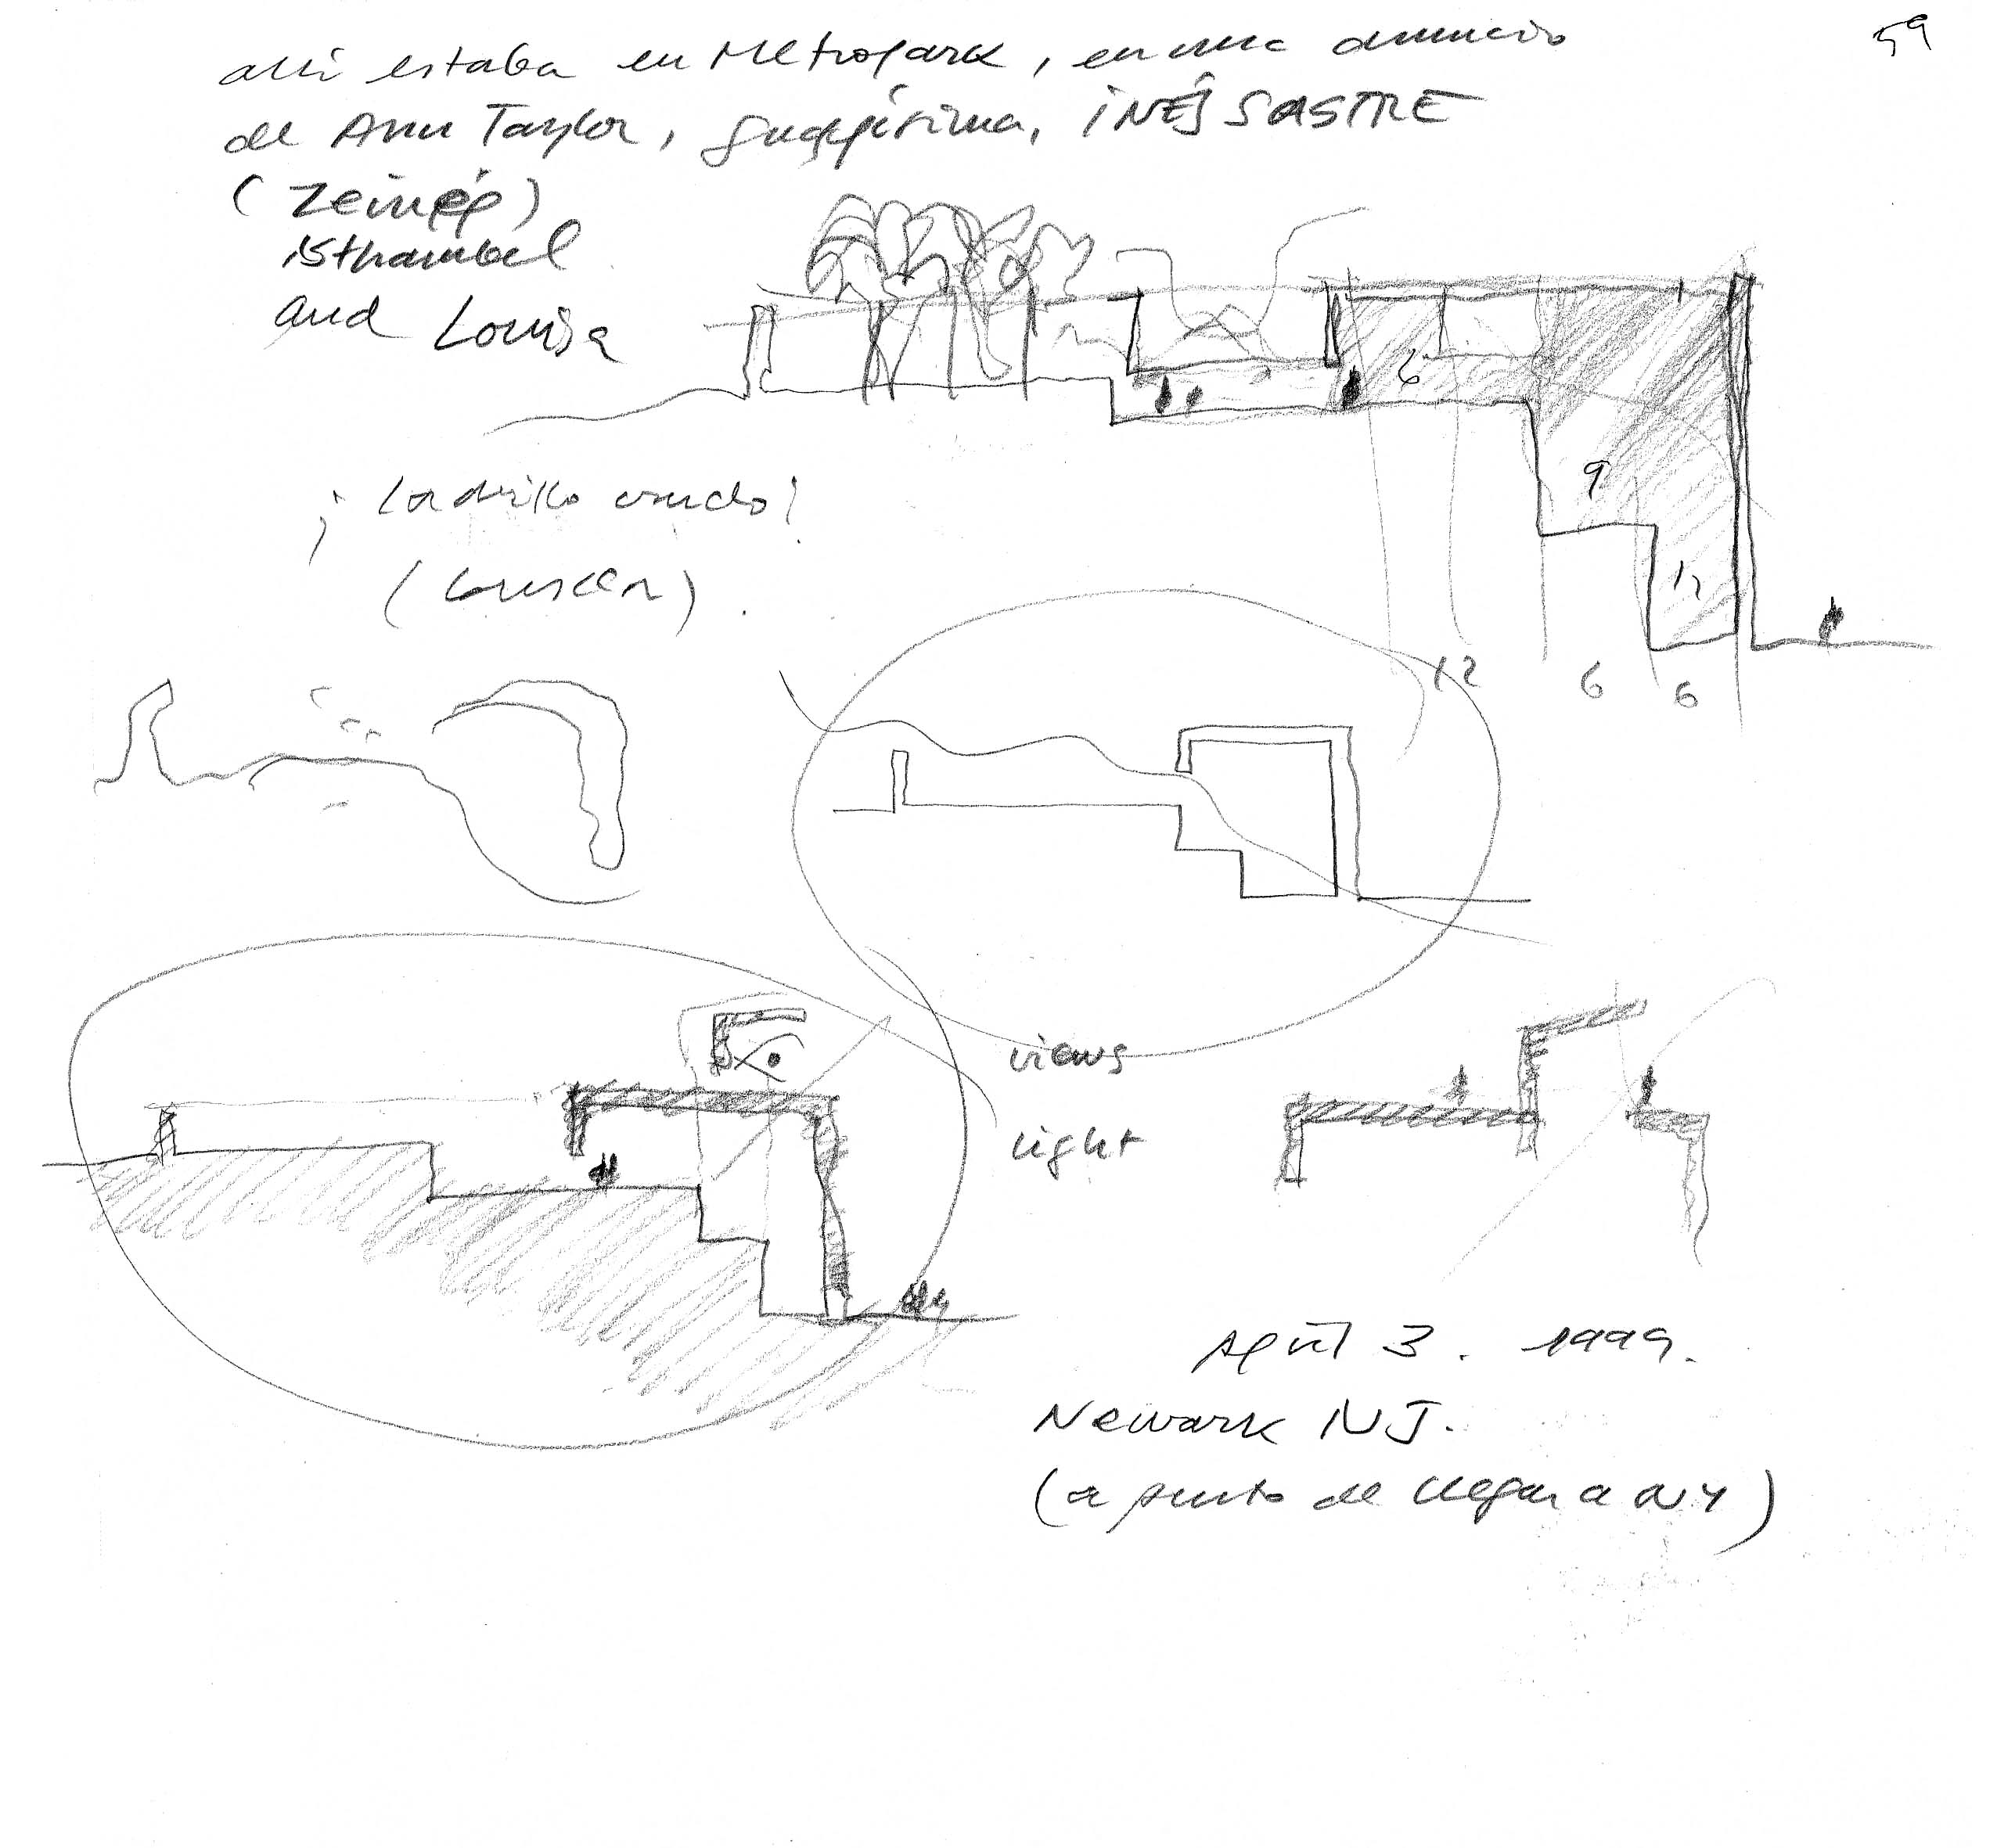 59
allí estaba en Metropark, en una anuncio
de Ann Taylor, guapísima, INÉS SASTRE
(Zeinep)
isthambul
and Louisa
6
¡ Ladrillo crudo!
9
12
12
6
6
views
light
April 3. 1999.
Newark NJ.
(a punto de llegar a NY)